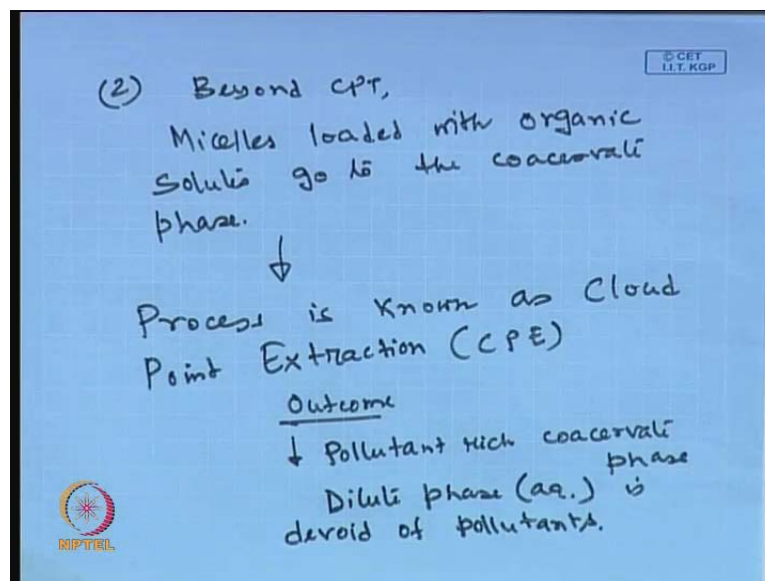 © CET
I.I.T. KGP
(2) Beyond CPT,
Micelles loaded with organic
solute go to the coacervate
phase.
↓
Process is known as Cloud
Point Extraction (CPE)
Outcome
↓ Pollutant rich coacervate
phase
Dilute phase (aq.) is
devoid of pollutants.
NPTEL